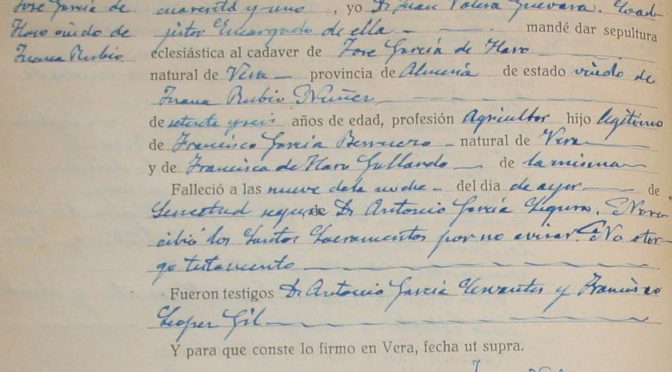 José García de
Haro viudo de
Juana Rubio
cuarenta y uno, yo D. Juan Valera Guevara. Coad-
jutor Encargado de ella mandé dar sepultura
eclesiástica al cadaver de José García de Haro
natural de Vera provincia de Almería de estado viudo de
Juana Rubio Núñez
de setenta y seis años de edad, profesión Agricultor hijo legítimo
de Francisco García Berruezo natural de Vera
y de Francisca de Haro Gallardo de la misma
Falleció a las nueve de la noche del día de ayer de
Senectud según D. Antonio García Segura. No re
cibió los Santos Sacramentos por no avisar. No otor-
gó testamento
Fueron testigos D. Antonio García Cervantes y Francisco
López Gil
Y para que conste lo firmo en Vera, fecha ut supra.